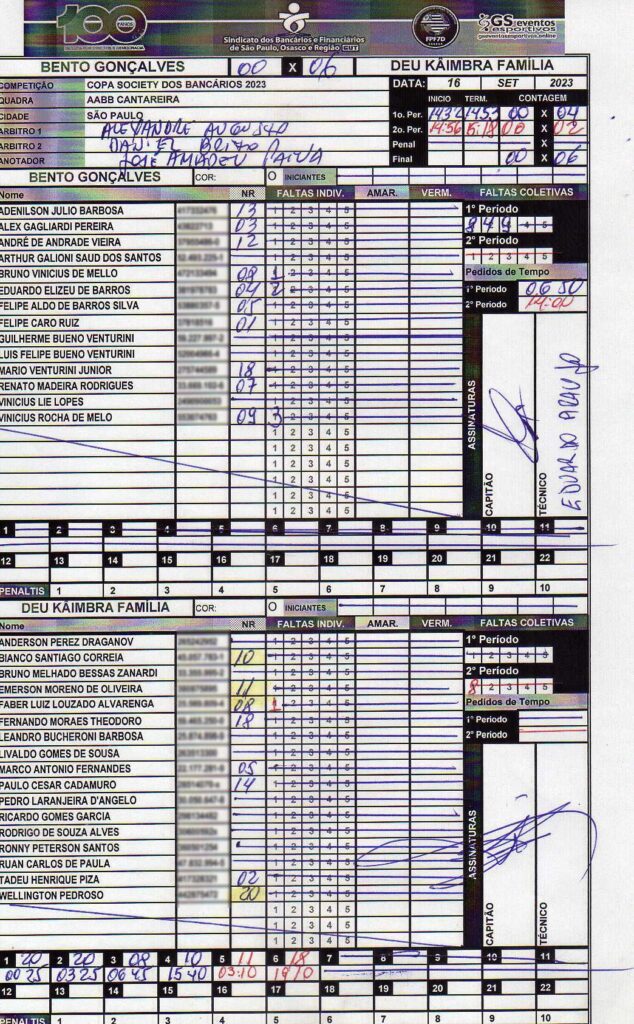 100 ANOS
Sindicato dos Bancários e Financiários
de São Paulo, Osasco e Região CUT
FPF7D
GS eventos esportivos
gseventosesportivos.online
BENTO GONÇALVES 00 X 06 DEU KÂIMBRA FAMÍLIA
COMPETIÇÃO COPA SOCIETY DOS BANCÁRIOS 2023 DATA: 16 SET 2023
QUADRA AABB CANTAREIRA INICIO TERM. CONTAGEM
CIDADE SÃO PAULO 1o. Per. 1432 1453 00 X 04
ARBITRO 1 ALEXANDRE AUGUSTO 2o. Per. 14:56 15:18 00 X 02
ARBITRO 2 DANIEL BRITO Penal X
ANOTADOR JOSE AMADEU PAIVA Final 00 X 06
BENTO GONÇALVES COR: O INICIANTES
Nome NR FALTAS INDIV. AMAR. VERM. FALTAS COLETIVAS
ADENILSON JULIO BARBOSA 13 1 2 3 4 5 1º Período
ALEX GAGLIARDI PEREIRA 03 1 2 3 4 5 8 4 9 4 5
ANDRÉ DE ANDRADE VIEIRA 12 1 2 3 4 5 2º Período
ARTHUR GALIONI SAUD DOS SANTOS 1 2 3 4 5 1 2 3 4 5
BRUNO VINICIUS DE MELLO 08 1 2 3 4 5 Pedidos de Tempo
EDUARDO ELIZEU DE BARROS 04 2 2 3 4 5 1º Período 06 50
FELIPE ALDO DE BARROS SILVA 05 1 2 3 4 5 2º Período 14:00
FELIPE CARO RUIZ 01 1 2 3 4 5
GUILHERME BUENO VENTURINI 1 2 3 4 5
LUIS FELIPE BUENO VENTURINI 1 2 3 4 5
MARIO VENTURINI JUNIOR 18 1 2 3 4 5
RENATO MADEIRA RODRIGUES 07 1 2 3 4 5
VINICIUS LIE LOPES 1 2 3 4 5
VINICIUS ROCHA DE MELO 09 3 2 3 4 5
1 2 3 4 5
1 2 3 4 5
1 2 3 4 5
1 2 3 4 5
1 2 3 4 5
1 2 3 4 5
ASSINATURAS
CAPITÃO
TÉCNICO
EDUARDO ARAUJO
1 2 3 4 5 6 7 8 9 10 11
12 13 14 15 16 17 18 19 20 21 22
PENALTIS 1 2 3 4 5 6 7 8 9 10
DEU KÂIMBRA FAMÍLIA COR: O INICIANTES
Nome NR FALTAS INDIV. AMAR. VERM. FALTAS COLETIVAS
ANDERSON PEREZ DRAGANOV 1 2 3 4 5 1º Período
BIANCO SANTIAGO CORREIA 10 1 2 3 4 5 1 2 3 4 5
BRUNO MELHADO BESSAS ZANARDI 1 2 3 4 5 2º Período
EMERSON MORENO DE OLIVEIRA 11 1 2 3 4 5 8 2 3 4 5
FABER LUIZ LOUZADO ALVARENGA 08 1 2 3 4 5 Pedidos de Tempo
FERNANDO MORAES THEODORO 18 1 2 3 4 5 1º Período
LEANDRO BUCHERONI BARBOSA 1 2 3 4 5 2º Período
LIVALDO GOMES DE SOUSA 1 2 3 4 5
MARCO ANTONIO FERNANDES 05 1 2 3 4 5
PAULO CESAR CADAMURO 14 1 2 3 4 5
PEDRO LARANJEIRA D'ANGELO 1 2 3 4 5
RICARDO GOMES GARCIA 1 2 3 4 5
RODRIGO DE SOUZA ALVES 1 2 3 4 5
RONNY PETERSON SANTOS 1 2 3 4 5
RUAN CARLOS DE PAULA 1 2 3 4 5
TADEU HENRIQUE PIZA 02 1 2 3 4 5
WELLINGTON PEDROSO 20 1 2 3 4 5
1 2 3 4 5
1 2 3 4 5
1 2 3 4 5
ASSINATURAS
CAPITÃO
TÉCNICO
1 20 2 20 3 08 4 10 5 11 6 18 7 8 9 10 11
00 25 03 25 06 45 15 40 03:10 19 10
12 13 14 15 16 17 18 19 20 21 22
PENALTIS 1 2 3 4 5 6 7 8 9 10